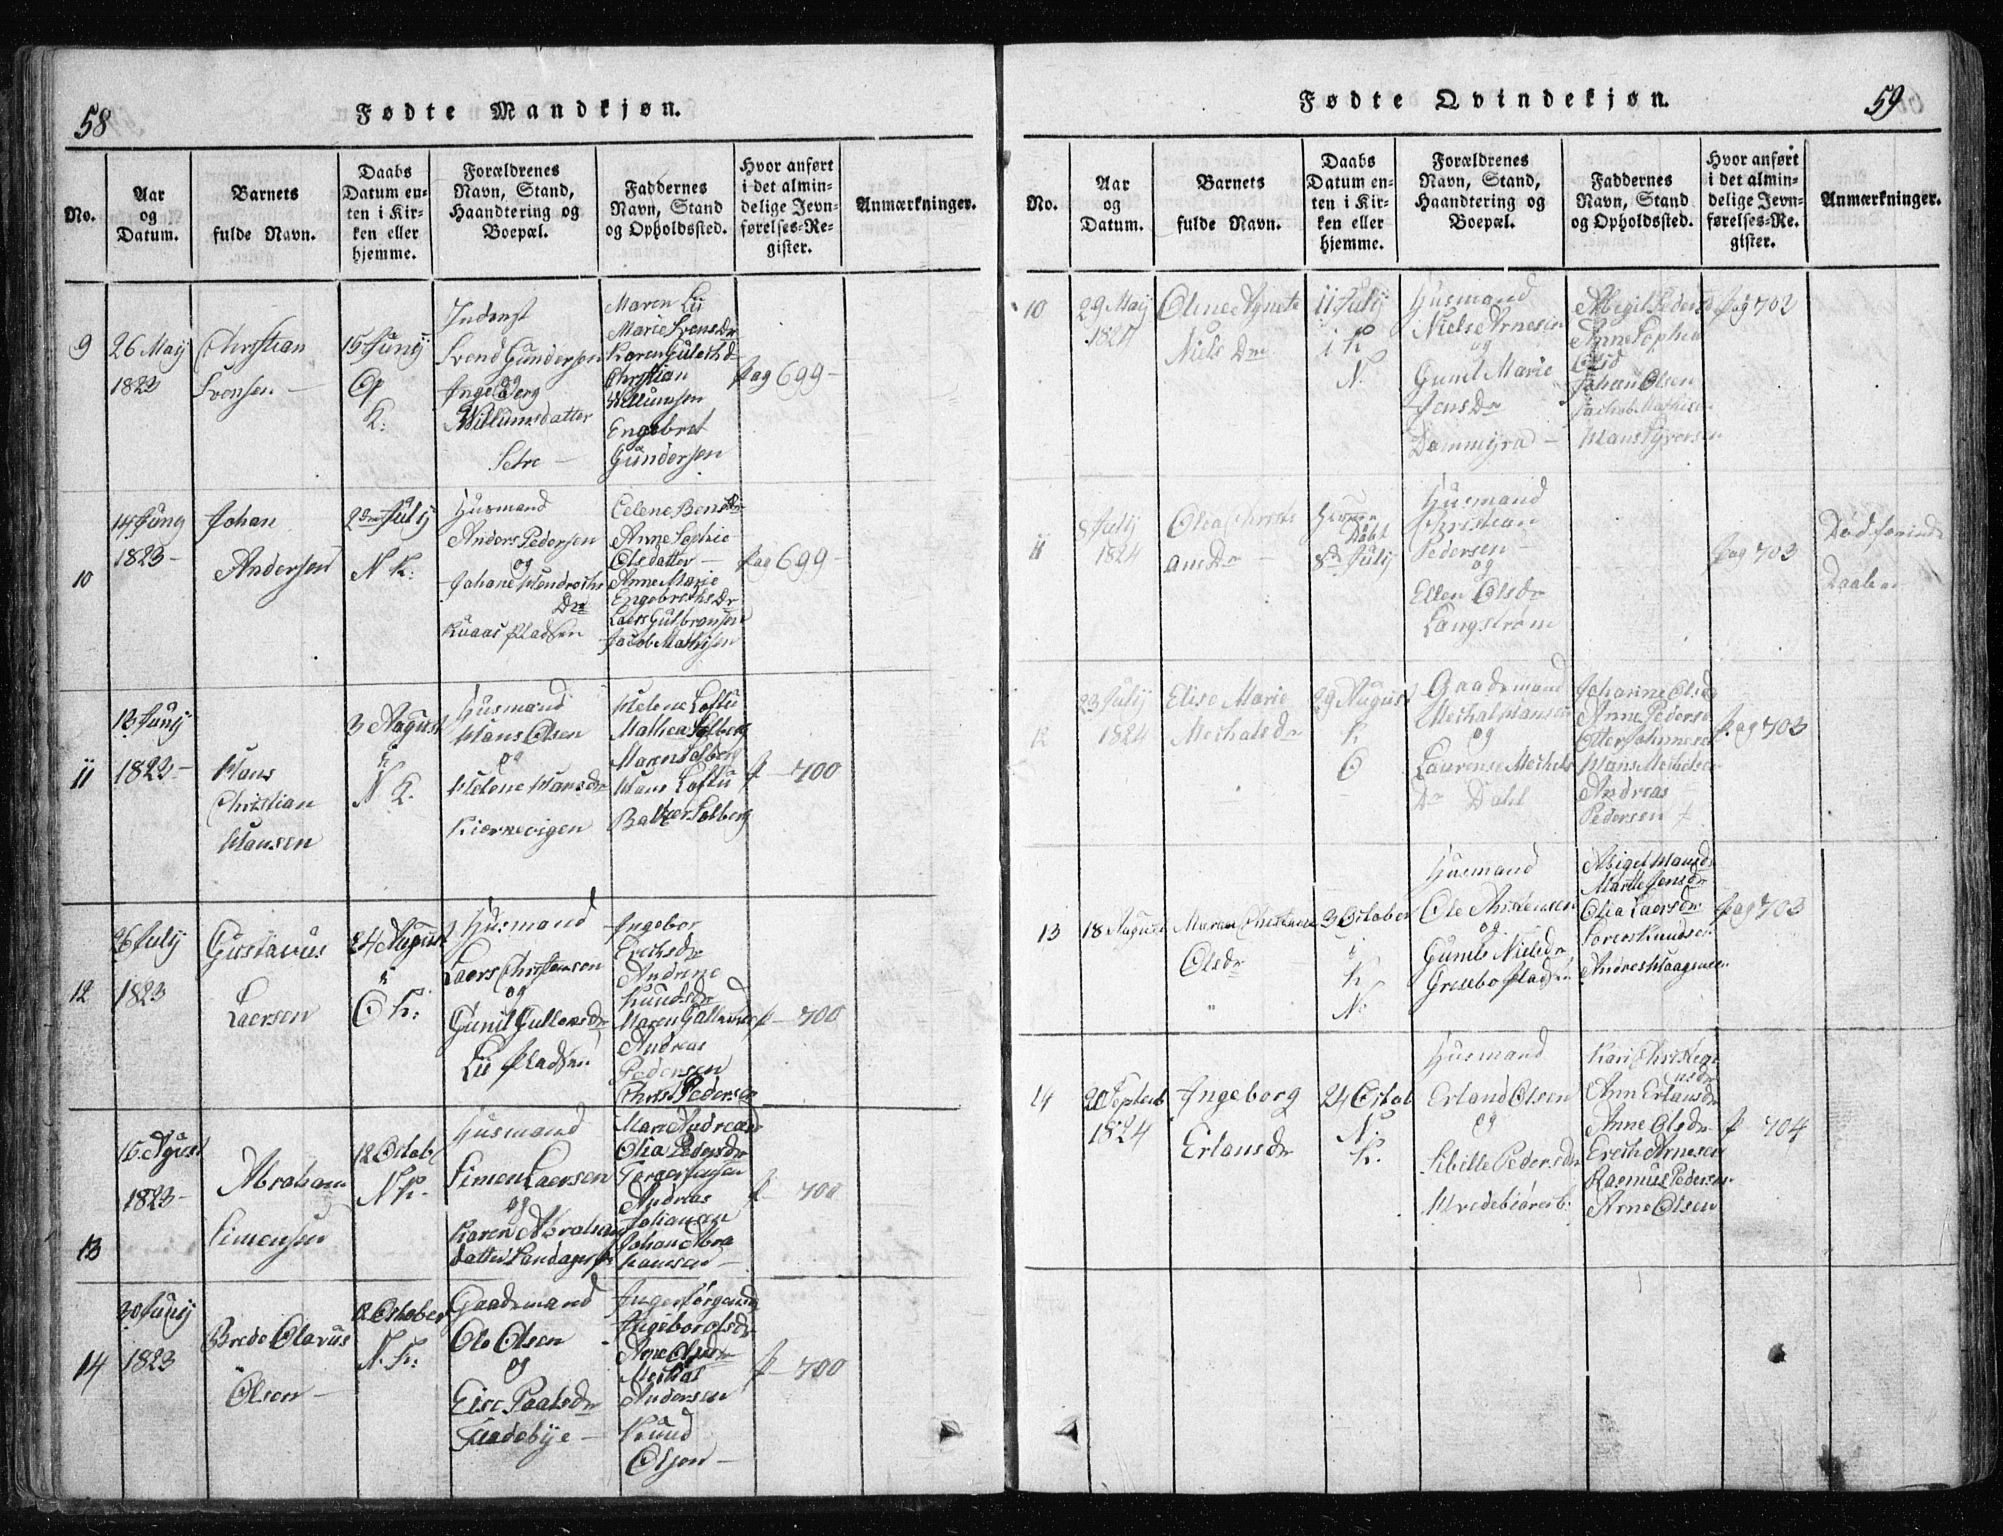 58
Fødte Mandkjøn.
No.
Aar
og
Datum.
Barnets
fulde Navn.
Daabs
Datum en-
ten i Kir-
ken eller
hjemme.
Forældrenes
Navn, Stand,
Haandtering og
Boepæl.
Faddernes
Navn, Stand
og Opholdssted.
Hvor anført
i det almin-
delige Jevn-
førelses-Re-
gister.
Anmærkninger.
9
26 Maij
1823
Christian
Svensen
15 Junij
O
K:
Inderst
Svend Gundersen
og
Ingeborg
Willumsdatter
Setre
Maren Lü
Marie SvensDr
Christian
Willumsen
Engebret
Gundersen
pag 699
10
14 Juny
1823
Johan
Andersen
2den Julij
N K:
Husmand
Anders Pedersen
og
Johane Hendrichs
Dr
Kuaas Pladsen
Anne Sophie
Olsdatter
Anne Marie
EngebrethsDr
Laers Gulbransen
Jacob Mathisen
pag 699
11
13 Junij
1823
Hans
Christian
Hansen
3 August
i
N K.
Husmand
Hans Olsen
og
Helene HansDr
Kiernevigen
Helene Loftu
Mathea Solberg
Maren Solberg
Hans Loftu
Baltzer Solberg
p 700
12
26 Julij
1823
Gustavus
Laersen
24 August
i
O K:
Husmand
Laers Christensen
og
Gunil GullersDr
Lü Pladsen
Ingebor
EricksDr
Andrine
KnudsDr
Maren
Andreas
Pedersen
Christ Pedersen
p 700
13
15 Agust
1823
Abraham
Simensen
12 Octob
N K.
Husmand
Simen Laersen
og
Karen Abraham
datter
Olia PedersDr
Andreas
Johansen
Johan Abra
hamsen
p 700
14
30 Junij
1823
Brede Olavus
Olsen
12 October
N. K:
Gaardmand
Ole Olsen
og
Elise PaalsDr
Arne Olsen
Mechal
Andersen
Knud
Olsen
p 700
59
Fødte Qvindekjøn.
No.
Aar
og
Datum.
Barnets
fulde Navn.
Daabs
Datum en-
ten i Kir-
ken eller
hjemme.
Forældrenes
Navn, Stand,
Haandtering og
Boepæl.
Faddernes
Navn, Stand
og Opholdssted.
Hvor anført
i det almin-
delige Jevn-
førelses-Re-
gister.
Anmærkninger.
10
29 Maij
1824
Oline Agnete
Niels Dr
11 Julij
i K
N.
Husmand
Niels Arnesen
og
Gunil Marie
JensDr
Dammyra
Abigil Pedersd
Anne Sophia
Olsd
Johan Olsen
Jachob Mathisen
Hans Syversen
pag 702
11
8 Julij
1824
Olea Christi
ane Dr
Hiemme
Døbt
8de Julij
Husmand
Christian
Pedersen
og
Ellen OlsDr
Langstrøm
pag 703
Død forinde
Daaben
12
23 Julij
1824
Elise Marie
MechalsDr
29 August
K
O
Gaardmand
Mechal Hansen
og
Laurense Mechels
Dr Dahl
Johanne Olsd
Anne Peders
Otter Johnnesen
Hans Mechelsen
Andreas
Pedersen
pag 703
13
18 August
Maren Christiane
OlsDr
3 October
i
K
N.
Husmand
Ole Christensen
og
Gunild NielsDr
Grisebo Pladsen
Abigel HansDr
Marthe JensDr
Olia LaersDr
Soren Knudsen
pag 703
14
20 Septemb
1824
Ingeborg
ErlansDr
24 Octob
N.
K.
Husmand
Erland Olsen
og
Sibille PedersDr
Ann ErlansDr
Anne OlsDr
Erich Arnesen
Rasmus Pedersen
Arne Olsen
p 704